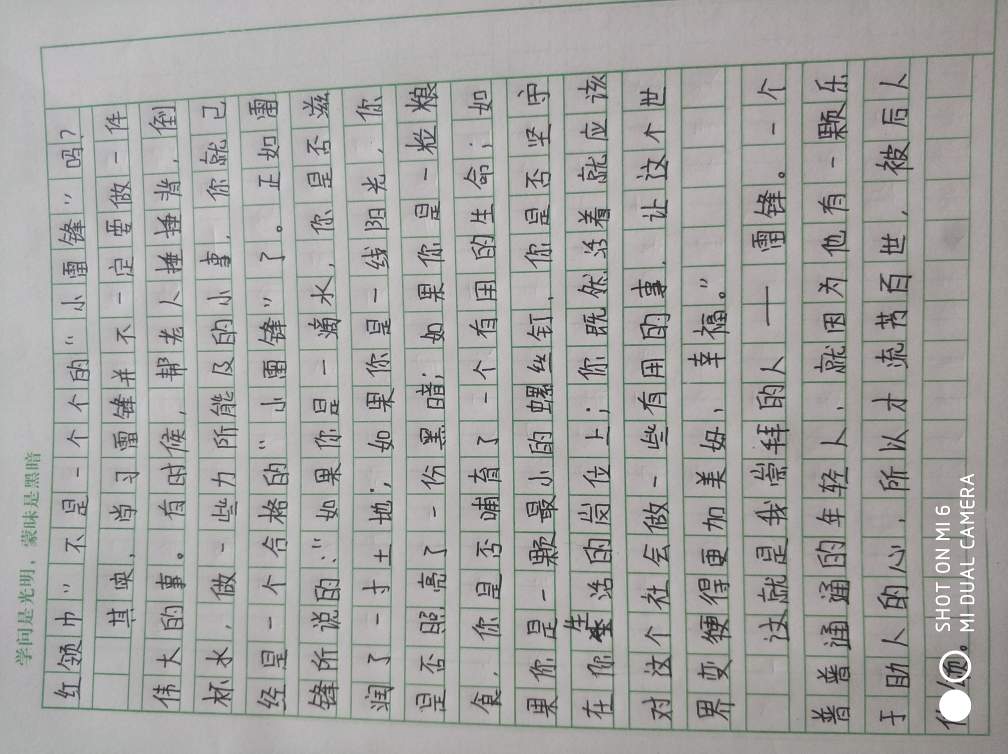 学问是光明，蒙昧是黑暗
红领巾”不是一个个的“小雷锋”吗？
其实，学习雷锋并不一定要做一件
伟大的事。有时候，帮老人捶捶背，倒
杯水，做一些力所能及的小事，你就已
经是一个合格的“小雷锋”了。正如雷
锋所说的：“如果你是一滴水，你是否滋
润了一寸土地；如果你是一线阳光，你
是否照亮了一份黑暗；如果你是一粒粮
食，你是否哺育了一个有用的生命；如
果你是一颗最小的螺丝钉，你是否坚守
在你生活的岗位上；你既然活着就应该
对这个社会做一些有用的事，让这个世
界变得更加美好、幸福。”
这就是我崇拜的人——雷锋。一个
普普通通的年轻人，就因为他有一颗乐
于助人的心，所以才流芳百世，被后人
颂。
SHOT ON MI 6
MI DUAL CAMERA